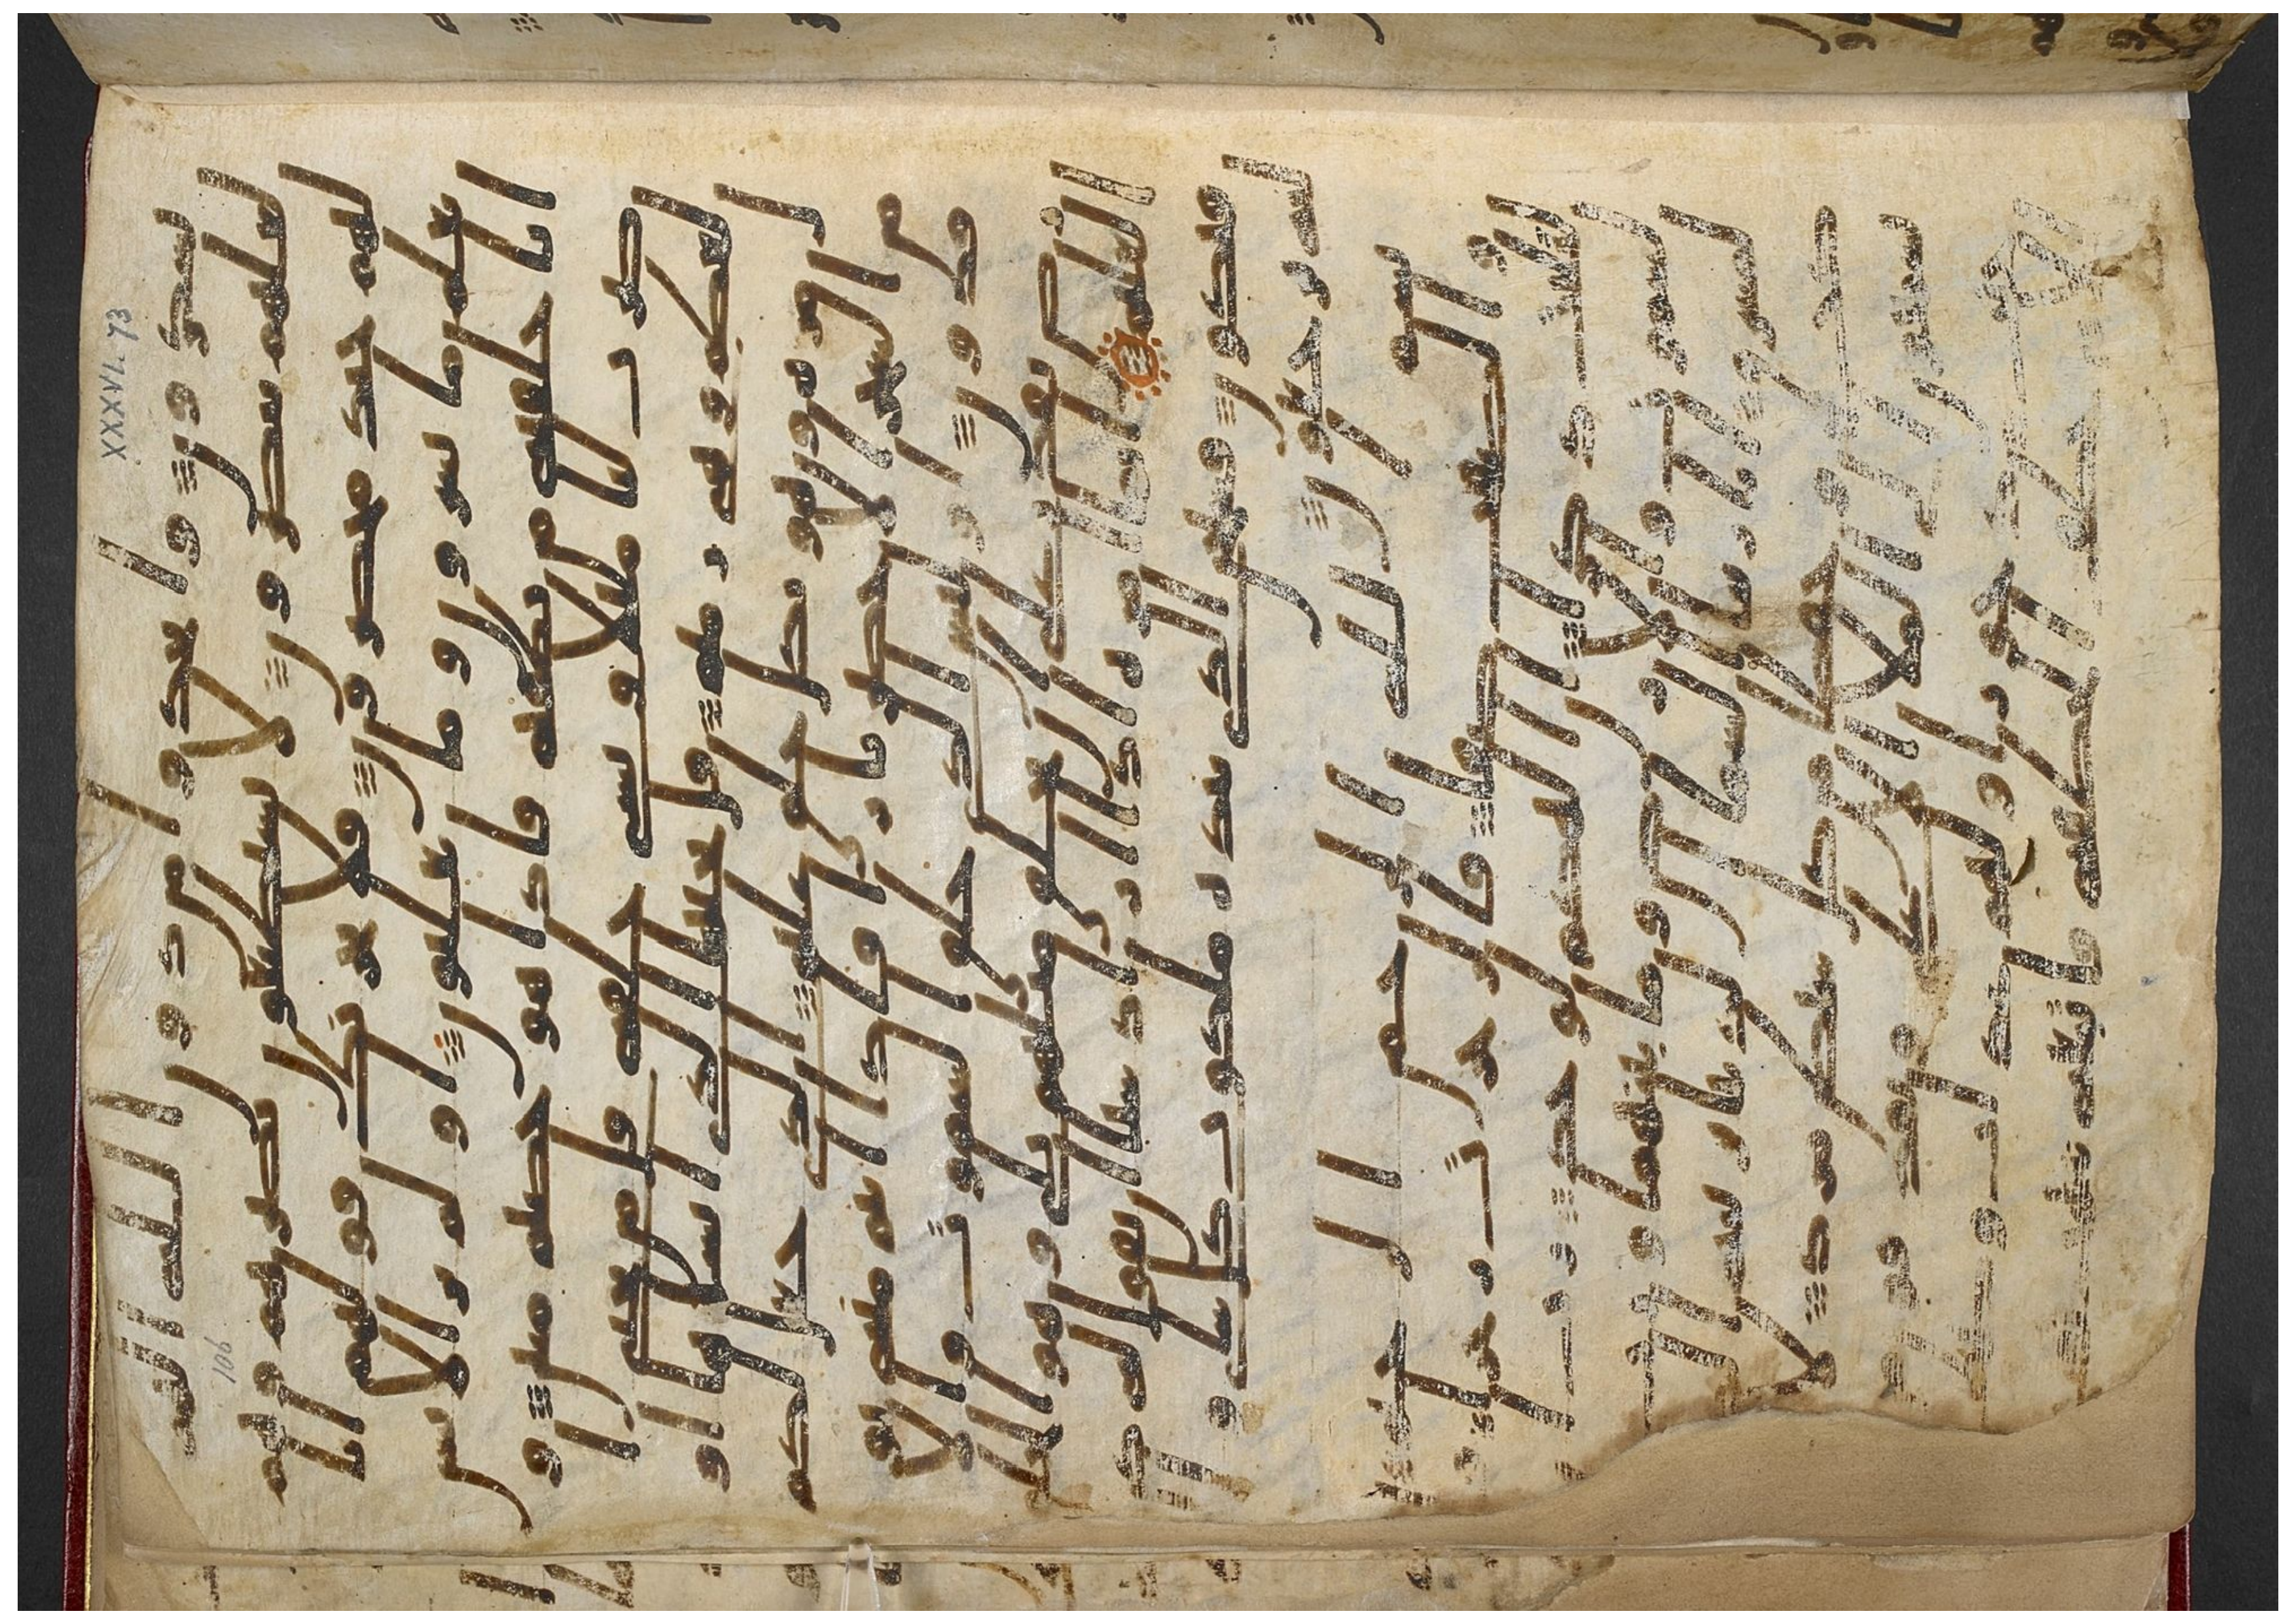 يشكرون واتخذوا من دون الله الهه
لعلهم ينصرون لا يستطيعون نصرهم وهم
لهم جند محضرون فلا يحزنك قولهم انا
نعلم ما يسرون وما يعلنون اولم ير الانس
ن انا خلقنه من نطفه فاذا هو خصيم مبين و
ضرب لنا مثلا ونسي خلقه قال من يحي ا
لعظم وهي رميم قل يحييها الذي انشاها او
ل مره وهو بكل خلق عليم الذي جعل لكم
من الشجر الاخضر نارا فاذا انتم منه تو
قدون اوليس الذي خلق السموت والا
رض بقدر على ان يخلق مثلهم بلى وهو الخلق
العليم انما امره اذا اراد شيا ان يقول له كن
فيكون فسبحن الذي بيده ملكوت كل شي و
اليه ترجعون بسم الله الرحمن الرحيم
والصفت صفا فالزجرت زجرا فا
لتليت ذكرا ان الهكم لوحد رب
السموت والارض وما بينهما ورب ا
لمشرق انا زينا السما الدنيا بزينه
الكوكب وحفظا من كل شيطن مارد لا
يسمعون الى الملا الاعلى ويقذفون
من كل جنب دحورا ولهم عذاب واصب
الا من خطف الخطفه فاتبعه شهاب ثاقب
XXXVI. 73
106